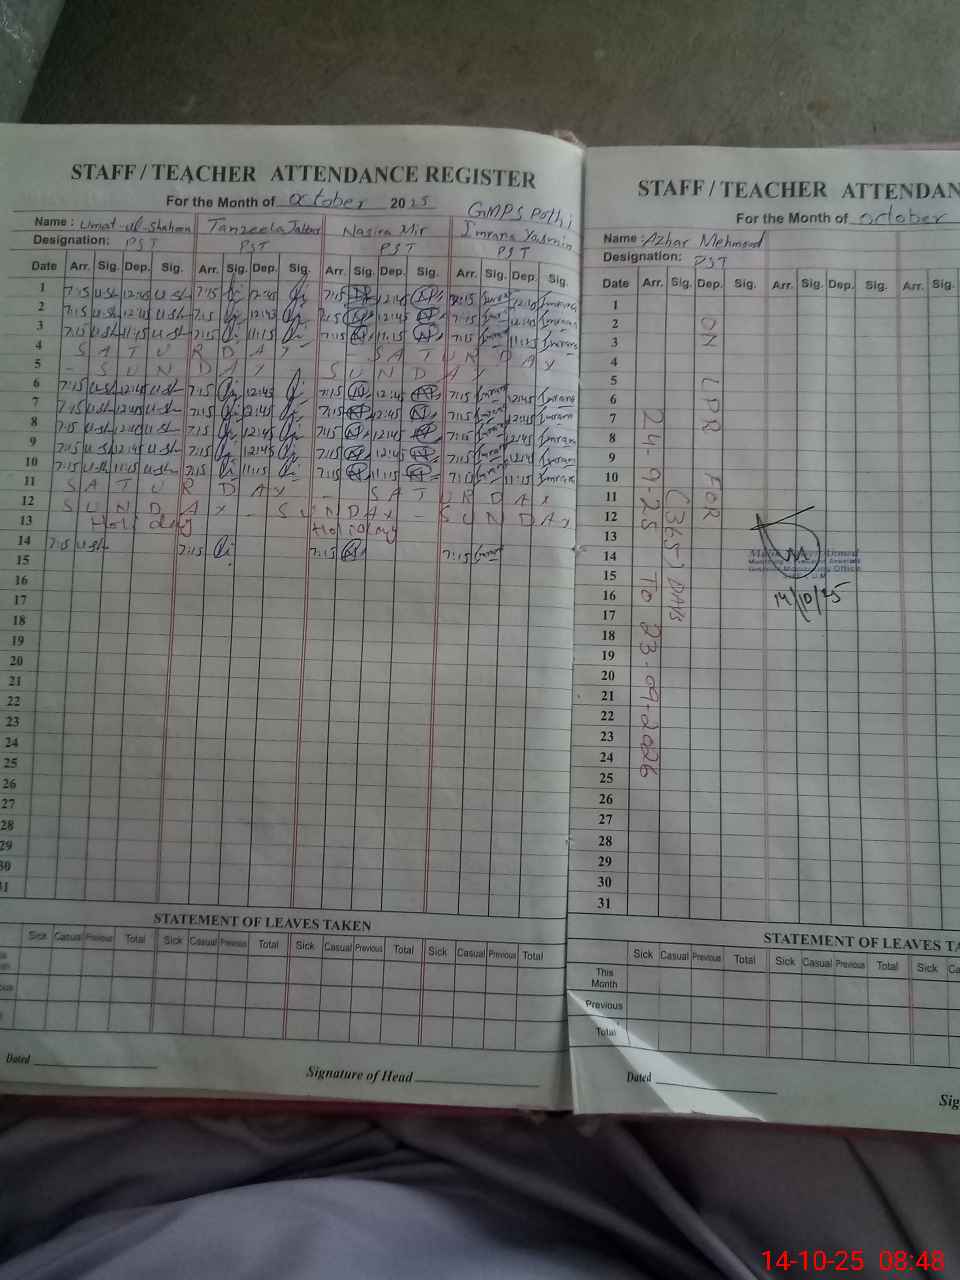 STAFF / TEACHER ATTENDANCE REGISTER
For the Month of October 2025
GMPS Pothi
Name : Umat-ul-Shaheen Tanzeela Jabbar Nasira Mir Imrana Yasmin
Designation: PST PST PST PST
Date Arr. Sig. Dep. Sig. Arr. Sig. Dep. Sig. Arr. Sig. Dep. Sig. Arr. Sig. Dep. Sig.
1 7:15 U-Sh 12:45 U-Sh 7:15 12:45 7:15 12:45 Imrana
2 7:15 U-Sh 12:45 U-Sh 7:15 12:45 7:15 12:45 7:15 12:45 Imrana
3 7:15 U-Sh 11:15 U-Sh 7:15 11:15 7:15 11:15 7:15 Imrana
4 S A T U R D A Y - S A T U R D A Y
5 - S U N D A Y S U N D A Y
6 7:15 U-Sh 12:45 U-Sh 7:15 12:45 7:15 12:45 7:15 12:45 Imrana
7 7:15 U-Sh 12:45 U-Sh 7:15 12:45 7:15 12:45 7:15 12:45 Imrana
8 7:15 U-Sh 12:45 U-Sh 7:15 12:45 7:15 12:45 7:15 12:45 Imrana
9 7:15 U-Sh 12:45 U-Sh 7:15 12:45 7:15 12:45 7:15 12:45 Imrana
10 7:15 U-Sh 11:15 U-Sh 7:15 11:15 7:15 11:15 7:15 11:15 Imrana
11 S A T U R D A Y - S A T U R D A Y
12 S U N D A Y - S U N D A Y - S U N D A Y
13 Holiday Holiday
14 7:15 U-Sh 7:15 7:15 7:15
15
16
17
18
19
20
21
22
23
24
25
26
27
28
29
30
31
STATEMENT OF LEAVES TAKEN
Sick Casual Previous Total Sick Casual Previous Total Sick Casual Previous Total Sick Casual Previous Total
Dated
Signature of Head
STAFF / TEACHER ATTENDAN
For the Month of October
Name : Azhar Mehmood
Designation: PST
Date Arr. Sig. Dep. Sig. Arr. Sig. Dep. Sig. Arr. Sig.
1
2
3
4
5
6
7
8
9
10
11
12
13
14
15
16
17
18
19
20
21
22
23
24
25
26
27
28
29
30
31
ON LPR FOR
(365) DAYS
24-9-25 TO 23-09-2026
14/10/25
STATEMENT OF LEAVES TA
Sick Casual Previous Total Sick Casual Previous Total Sick Ca
This Month
Previous
Total
Dated
Sig
14-10-25 08:48